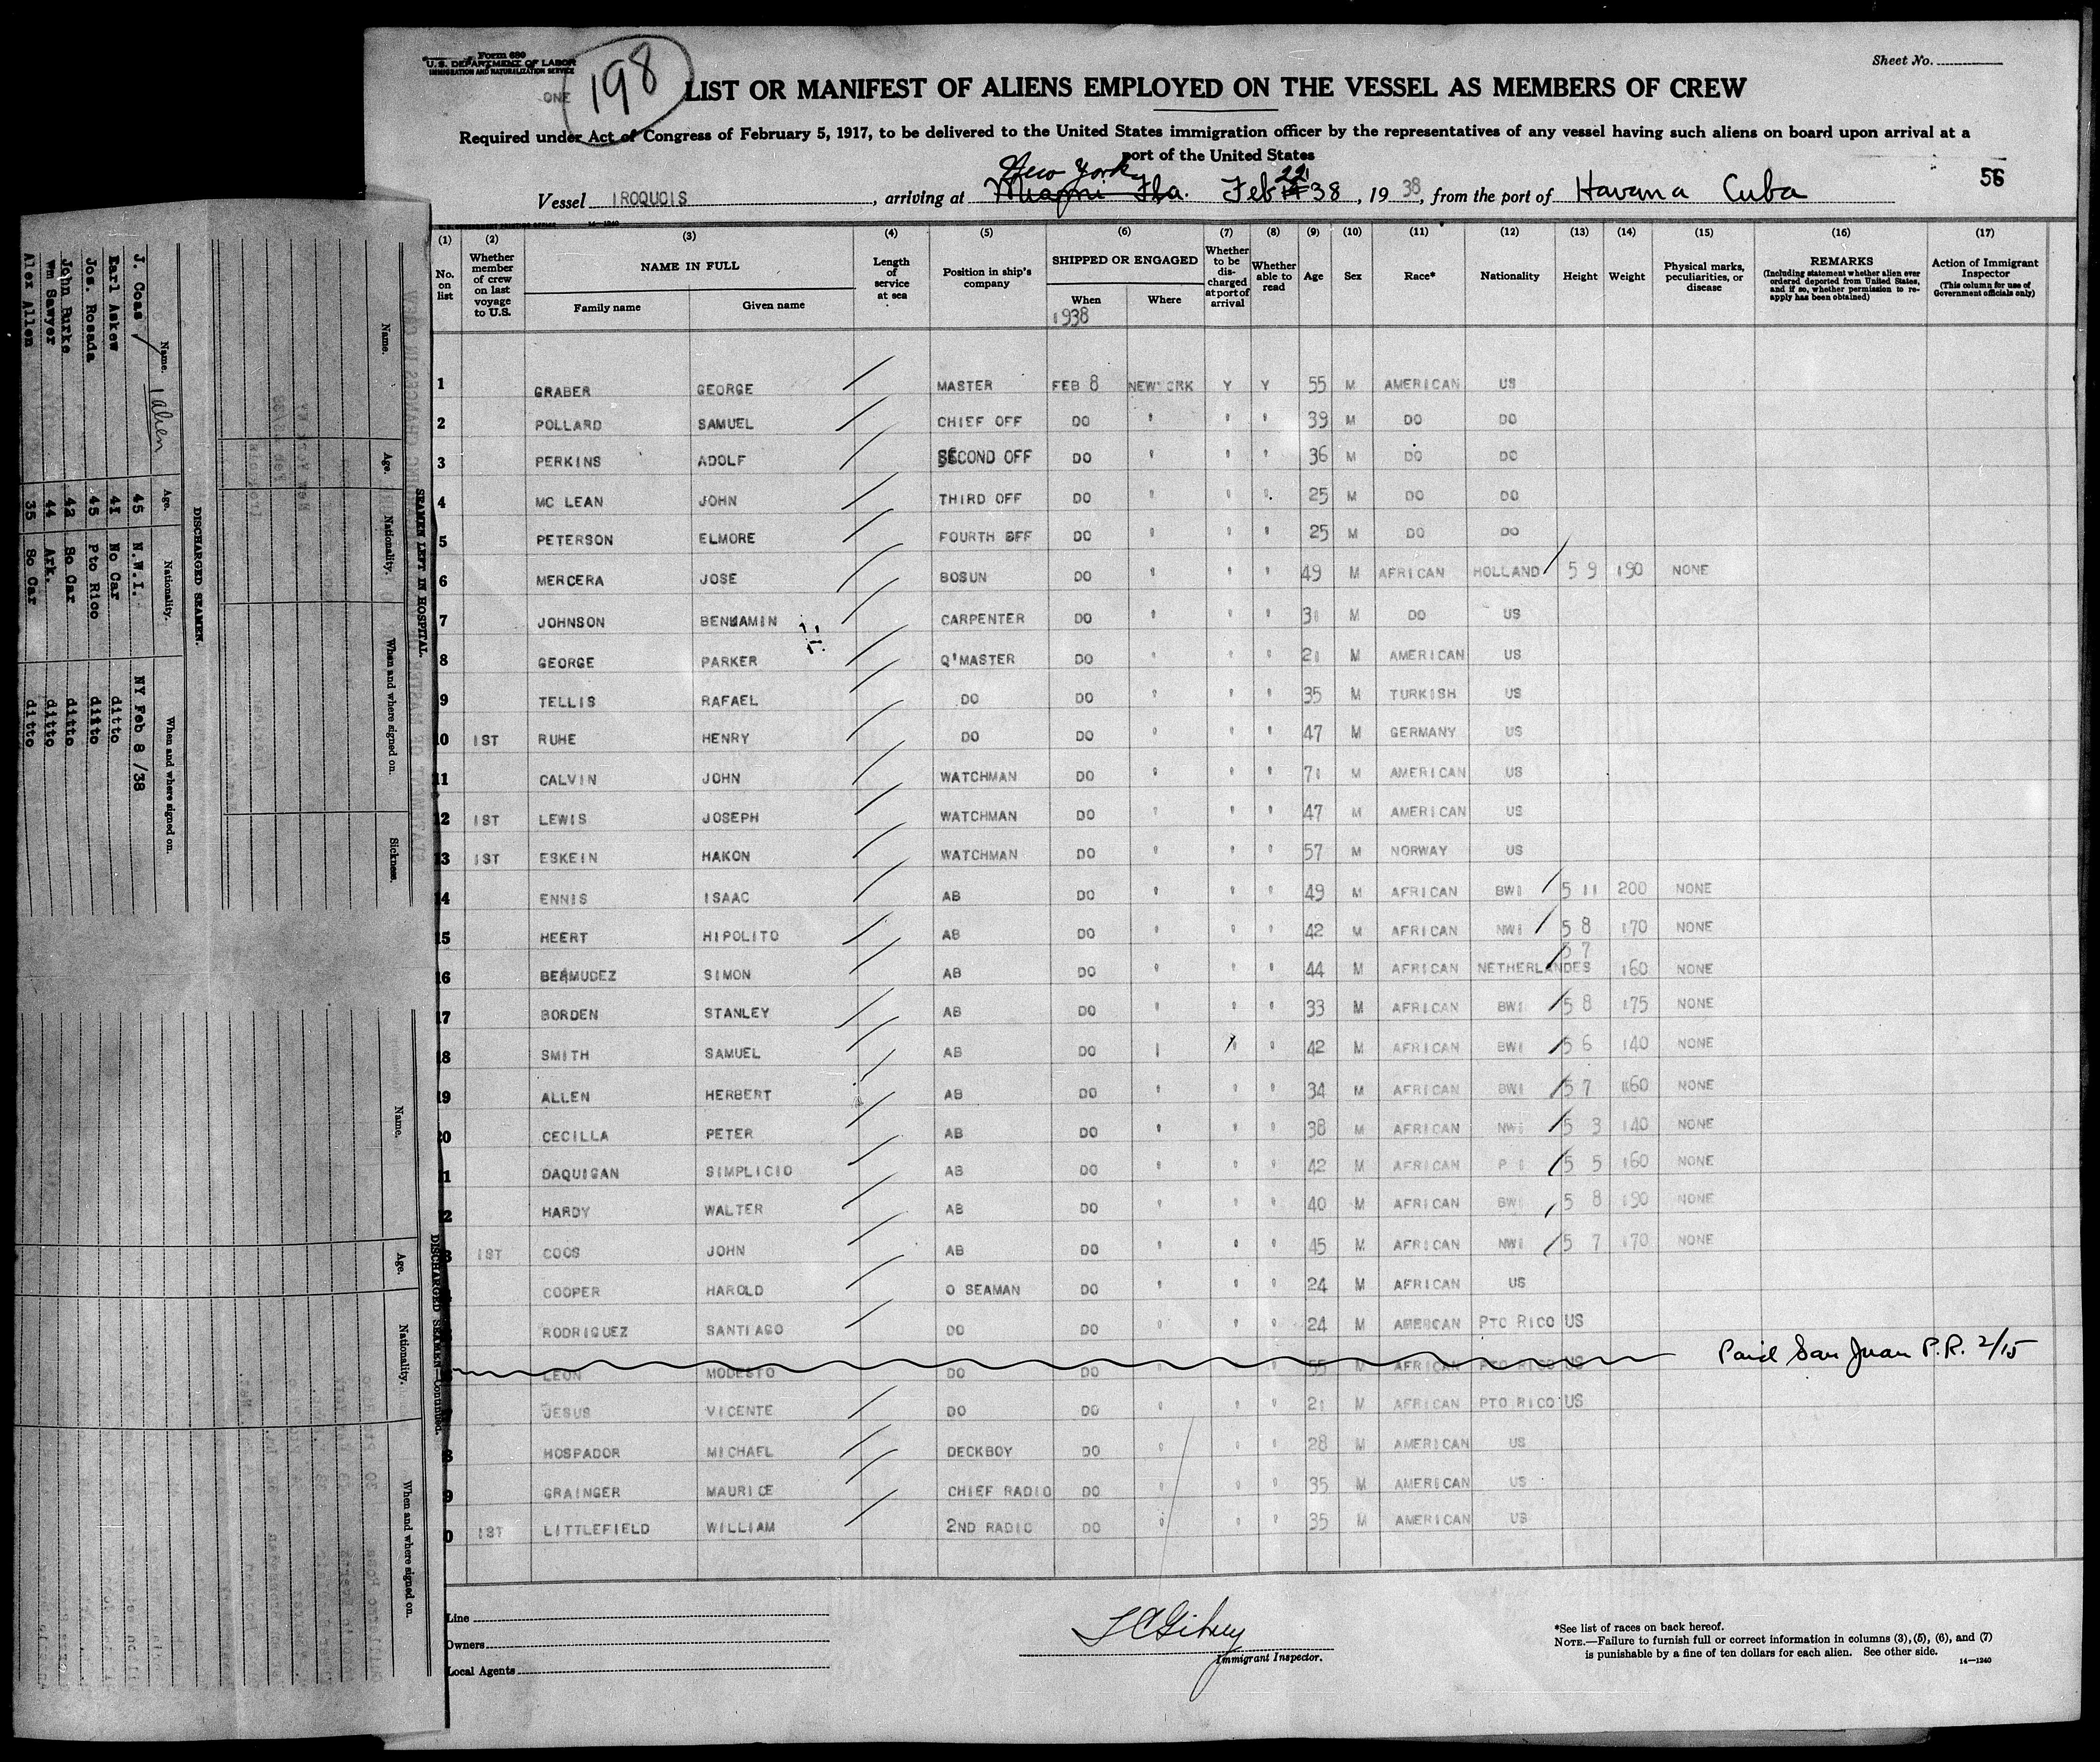 Form 680
U. S. DEPARTMENT OF LABOR
IMMIGRATION AND NATURALIZATION SERVICE
ONE
198
Sheet No.
LIST OR MANIFEST OF ALIENS EMPLOYED ON THE VESSEL AS MEMBERS OF CREW
Required under Act of Congress of February 5, 1917, to be delivered to the United States immigration officer by the representatives of any vessel having such aliens on board upon arrival at a
port of the United States
56
New York
22
Vessel IROQUOIS, arriving at Miami Fla. Feb 38, 1938, from the port of Havana Cuba
14—1240
(1) (2) (3) (4) (5) (6) (7) (8) (9) (10) (11) (12) (13) (14) (15) (16) (17)
No. on list
Whether member of crew on last voyage to U.S.
NAME IN FULL
Family name Given name
Length of service at sea
Position in ship's company
SHIPPED OR ENGAGED
When Where
1938
Whether to be discharged at port of arrival
Whether able to read
Age
Sex
Race*
Nationality
Height
Weight
Physical marks, peculiarities, or disease
REMARKS
(Including statement whether alien ever ordered deported from United States, and if so, whether permission to reapply has been obtained)
Action of Immigrant Inspector
(This column for use of Government officials only)
1 GRABER GEORGE MASTER FEB 8 NEW YORK Y Y 55 M AMERICAN US
2 POLLARD SAMUEL CHIEF OFF DO " " " 39 M DO DO
3 PERKINS ADOLF SECOND OFF DO " " " 36 M DO DO
4 MC LEAN JOHN THIRD OFF DO " " " 25 M DO DO
5 PETERSON ELMORE FOURTH OFF DO " " " 25 M DO DO
6 MERCERA JOSE BOSUN DO " " " 49 M AFRICAN HOLLAND 5 9 190 NONE
7 JOHNSON BENJAMIN CARPENTER DO " " " 31 M DO US
8 GEORGE PARKER Q'MASTER DO " " " 21 M AMERICAN US
9 TELLIS RAFAEL DO DO " " " 35 M TURKISH US
10 1ST RUHE HENRY DO DO " " " 47 M GERMANY US
11 CALVIN JOHN WATCHMAN DO " " " 71 M AMERICAN US
2 1ST LEWIS JOSEPH WATCHMAN DO " " " 47 M AMERICAN US
13 1ST ESKEIN HAKON WATCHMAN DO " " " 57 M NORWAY US
4 ENNIS ISAAC AB DO " " " 49 M AFRICAN BWI 5 11 200 NONE
15 HEERT HIPOLITO AB DO " " " 42 M AFRICAN NWI 5 8 170 NONE
16 BERMUDEZ SIMON AB DO " " " 44 M AFRICAN NETHERLANDES 5 7 160 NONE
17 BORDEN STANLEY AB DO " " " 33 M AFRICAN BWI 5 8 175 NONE
18 SMITH SAMUEL AB DO " " " 42 M AFRICAN BWI 5 6 140 NONE
19 ALLEN HERBERT AB DO " " " 34 M AFRICAN BWI 5 7 160 NONE
20 CECILLA PETER AB DO " " " 38 M AFRICAN NWI 5 3 140 NONE
1 DAQUIGAN SIMPLICIO AB DO " " " 42 M AFRICAN P I 5 5 160 NONE
2 HARDY WALTER AB DO " " " 40 M AFRICAN BWI 5 8 190 NONE
3 1ST COOS JOHN AB DO " " " 45 M AFRICAN NWI 5 7 170 NONE
COOPER HAROLD O SEAMAN DO " " " 24 M AFRICAN US
RODRIGUEZ SANTIAGO DO DO " " " 24 M AMERCAN PTO RICO US
LEON MODESTO DO DO 55 M AFRICAN PTO RICO US Paid San Juan P.R. 2/15
JESUS VICENTE DO DO " " " 21 M AFRICAN PTO RICO US
8 HOSPADOR MICHAEL DECKBOY DO " " " 28 M AMERICAN US
9 GRAINGER MAURICE CHIEF RADIO DO " " " 35 M AMERICAN US
0 1ST LITTLEFIELD WILLIAM 2ND RADIO DO " " " 35 M AMERICAN US
Line
Owners
Local Agents
Immigrant Inspector.
*See list of races on back hereof.
NOTE.—Failure to furnish full or correct information in columns (3), (5), (6), and (7)
is punishable by a fine of ten dollars for each alien. See other side.
14—1240
SEAMEN LEFT IN HOSPITAL.
Name. Age. Nationality. When and where signed on. Sickness.
DISCHARGED SEAMEN.
Name. Age. Nationality. When and where signed on.
1 alien
J. Coas 45 N.W.I. NY Feb 8 /38
Earl Askew 41 No Car ditto
Jos. Rosada 45 Pto Rico ditto
John Burke 42 So Car ditto
Wm Sawyer 44 Ark. ditto
Alex Allen 35 So Car ditto
DISCHARGED SEAMEN—Continued.
Name. Age. Nationality. When and where signed on.